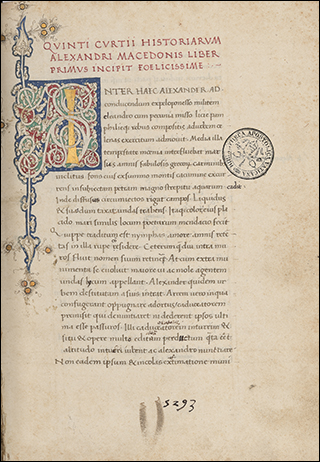 QVINTI CVRTII HISTORIARVM
ALEXANDRI MACEDONIS LIBER
PRIMVS INCIPIT FOELICISSIME :
INTER HAEC ALEXANDER AD
conducendum ex peloponneso militem
cleandro cum pecunia misso lyciae pam
philieque rebus compositis ad urbem ce
lenas exercitum admouit. Media illa
tempestate moenia interfluebat mar
sias amnis fabulosis grecorum carminibus
inclitus fons eius ex summo montis cacumine excur
rens in subiectam petram magno strepitu aquarum cadit
Inde diffusus circumiectos rigat campos. Liquidus
& suas dumtaxat undas trahens. Itaque color eius pla
cido mari similis locum poetarum mendacio fecit
Quippe traditum est nymphas amore amnis reten
tas in illa rupe residere. Ceterum quandiu intra mu
ros fluit nomen suum retinet At cum extra mu
nimenta se euoluit maiore ui ac mole agentem
undas lycum appellant. Alexander quidem ur
bem destitutam a suis intrat. Arcem uero in quam
confugerant oppugnare adortus caduceatorem
premisit qui denuntiaret ni dederent ipsos ulti
ma esse passuros. Illi caduceatorem in turrim &
situ & opere multum editam perductum quanta esset
altitudo intueri iubent ac alexandro nuntiare
Non eadem ipsum & incolas extimatione muni
5293